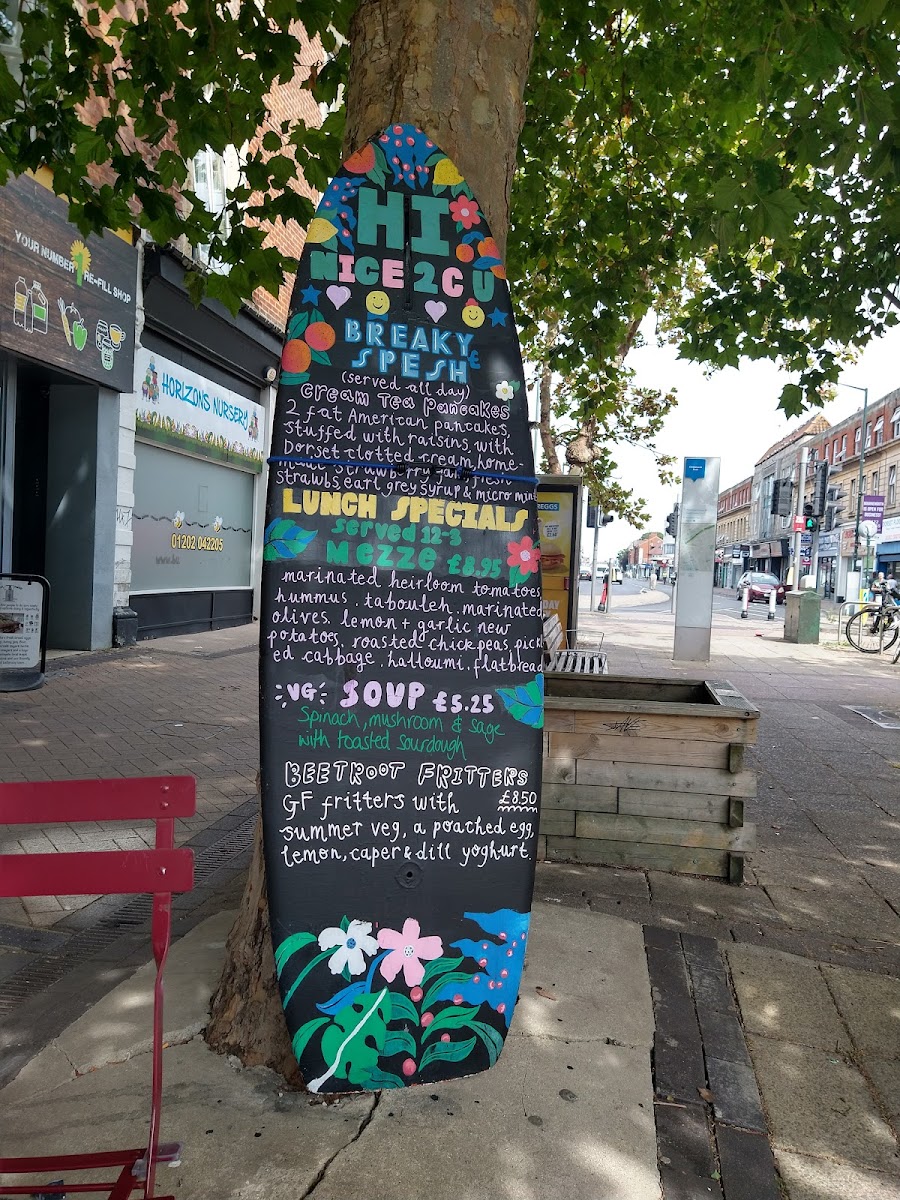 HI
NICE 2 C U
BREAKY
SPESH £
(served all day)
Cream Tea Pancakes
2 fat American pancakes
stuffed with raisins, with
Dorset clotted cream, home-
made strawberry jam, fresh
strawbs, earl grey syrup & micro mint
LUNCH SPECIALS
served 12-3
Mezze £8.95
marinated heirloom tomatoes
hummus . tabouleh . marinated
olives. lemon + garlic new
potatoes, roasted chickpeas, pick
ed cabbage . halloumi . flatbread
VG SOUP £5.25
Spinach, mushroom & sage
with toasted sourdough
BEETROOT FRITTERS
GF fritters with £8.50
summer veg, a poached egg,
lemon, caper & dill yoghurt.
YOUR NUMBER 1 RE-FILL SHOP
HORIZONS NURSERY
01202 042205